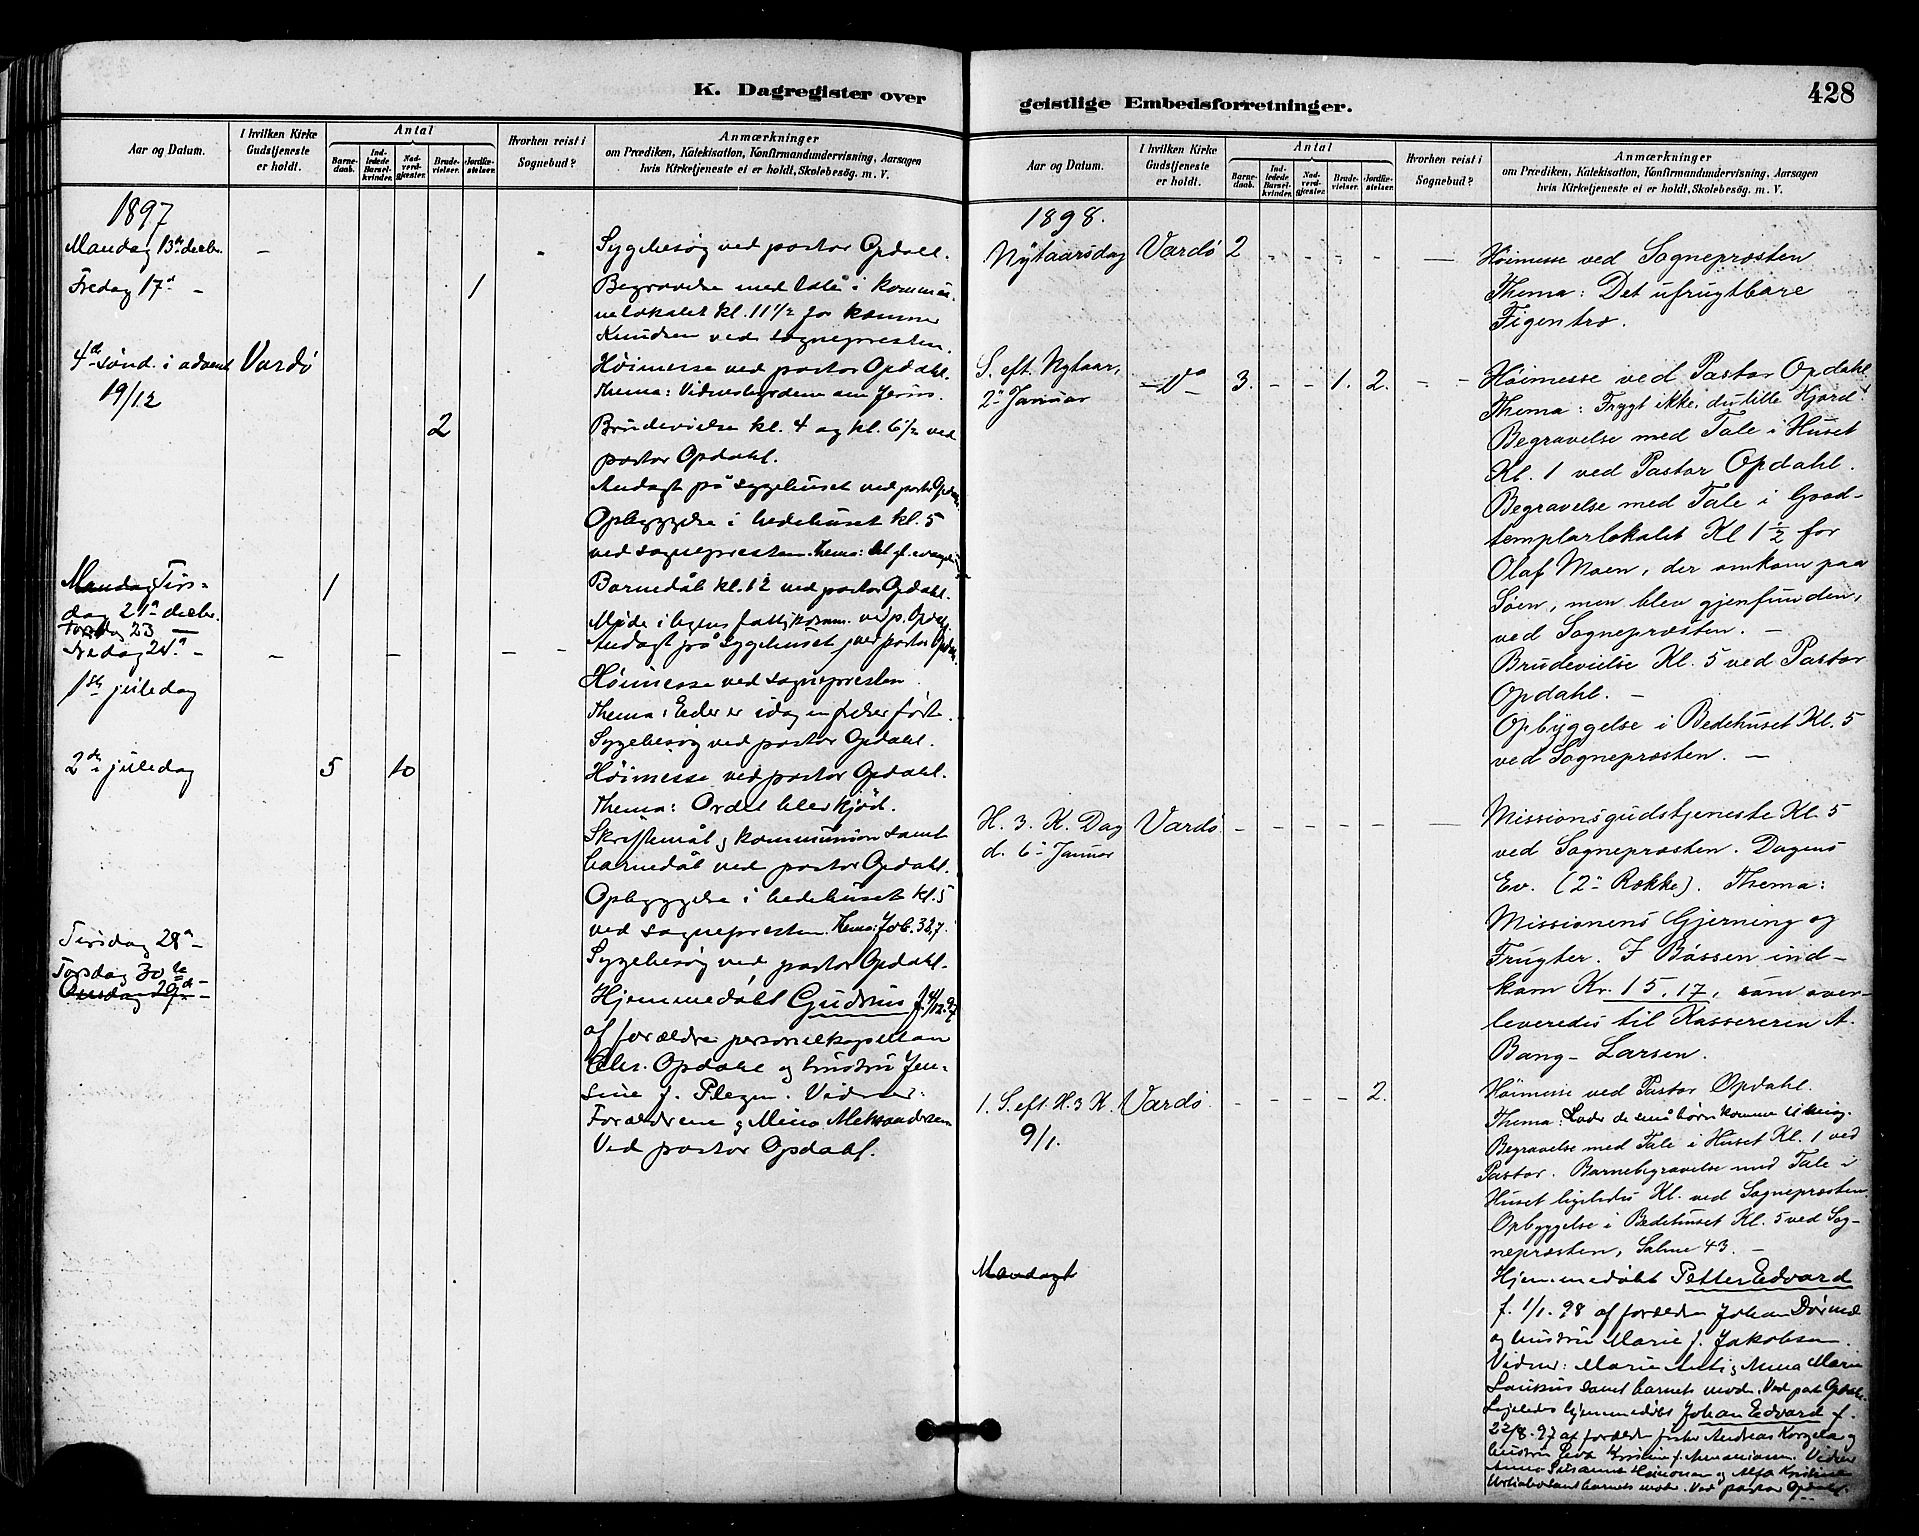 K. Dagregister over
geistlige Embedsforretninger.
428
Aar og Datum.
I hvilken Kirke Gudstjeneste er holdt.
Antal
Barnedaab.
Indledede Barselkvinder.
Nadverdgjester.
Brudevielser.
Jordfæstelser.
Hvorhen reist i Sognebud?
Anmærkninger
om Prædiken, Katekisation, Konfirmandundervisning, Aarsagen
hvis Kirketjeneste ei er holdt, Skolebesøg. m. V.
1897
Mandag 13de decbr. - - Sygebesøg ved pastor Opdahl.
Fredag 17de - 1 Begravelse med tale i kommu-
nelokalet kl. 11 1/2 for
Knudsen ved sognepresten.
4de sønd. i advent Vardö Høimesse ved pastor Opdahl.
19/12 Thema: Vidnesbyrdene om Jesus.
2 Brudevielse kl. 4 og kl. 6 1/2 ved
pastor Opdahl.
Andagt på sygehuset ved pastor Opdahl.
Opbyggelse i bedehuset kl. 5
ved sognepresten. Thema: Det
Mandag Tirs- 1 Barnedåb kl. 12 ved pastor Opdahl.
dag 21de decbr.
Torsdag 23 - Møde i ved p. Opdahl
Fredag 24de - - - - - Andagt på sygehuset ved pastor Opdahl.
1ste juledag Høimesse ved sognepresten.
Thema: Eder er idag en frelser født.
Sygebesøg ved pastor Opdahl.
2den juledag 5 10 Høimesse ved pastor Opdahl.
Thema: Ordet blev kjød.
Skriftemål og kommunion samt
barnedåb ved pastor Opdahl.
Opbyggelse i bedehuset kl. 5
ved sognepresten. Thema:
Tirsdag 28de - Sygebesøg ved pastor Opdahl.
Torsdag 30te -
Onsdag 29de - Hjemmedøbt Gudrun f. 4/12.97
af forældre personelkapellan
Chr. Opdahl og hustru Jen-
sine f. Vidner:
Forældrene og Mina Aleksandersen
Ved pastor Opdahl.
Aar og Datum.
I hvilken Kirke Gudstjeneste er holdt.
Antal
Barnedaab.
Indledede Barselkvinder.
Nadverdgjester.
Brudevielser.
Jordfæstelser.
Hvorhen reist i Sognebud?
Anmærkninger
om Prædiken, Katekisation, Konfirmandundervisning, Aarsagen
hvis Kirketjeneste ei er holdt, Skolebesøg m. V.
1898.
Nytaarsdag Vardø 2 - - - - - Høimesse ved Sognepræsten
Thema: Det ufrugtbare
Figentræ.
S. eft. Nytaar, - Do - 3. - - 1. 2. - - Høimesse ved Pastor Opdahl
2' Januar Thema: Frygt ikke, du lille Hjord
Begravelse med Tale i Huset
Kl. 1 ved Pastor Opdahl.
Begravelse med Tale i Good-
templarlokalet Kl 1 1/2 for
Olaf Moen, der omkom paa
Søen, men blev gjenfunden,
ved Sognepræsten. -
Brudevielse Kl. 5 ved Pastor
Opdahl. -
Opbyggelse i Bedehuset Kl. 5
ved Sognepræsten. -
H. 3. K. Dag Vardø. - - - - - - Missionsgudstjeneste Kl. 5
d. 6' Januar ved Sognepræsten. Dagens
Ev. (2' Række). Thema:
Missionens Gjerning og
Frugter. I Bøssen ind-
kom Kr. 15.17, som over-
leveredes til Kassereren A.
Bang-Larsen.
1. S. eft. H. 3 K. Vardø. - - - - 2. Høimesse ved Pastor Opdahl.
9/1. Thema: Lader de små børn komme til mig.
Begravelse med Tale i Huset Kl. 1 ved
Pastor. Barnebegravelse med Tale i
Huset ligeledes Kl. ved Sognepræsten.
Opbyggelse i Bedehuset Kl. 5 ved Sog-
nepræsten, Salme 43. -
Mandag Hjemmedøbt Petter Edvard
f. 1/1. 98 af forældre Johan
og hustru Marie f. Jakobsen
Vidner: Marie og Anna Marie
samt barnets moder. Ved past. Opdahl.
Ligeledes hjemmedøbt Johan Edvard f.
22/8.97 af forældre fisker Andreas og
hustru Eva Kristine f. Vidner
Anna Susanna og Alfa Kristine
samt barnets moder. Ved pastor Opdahl.